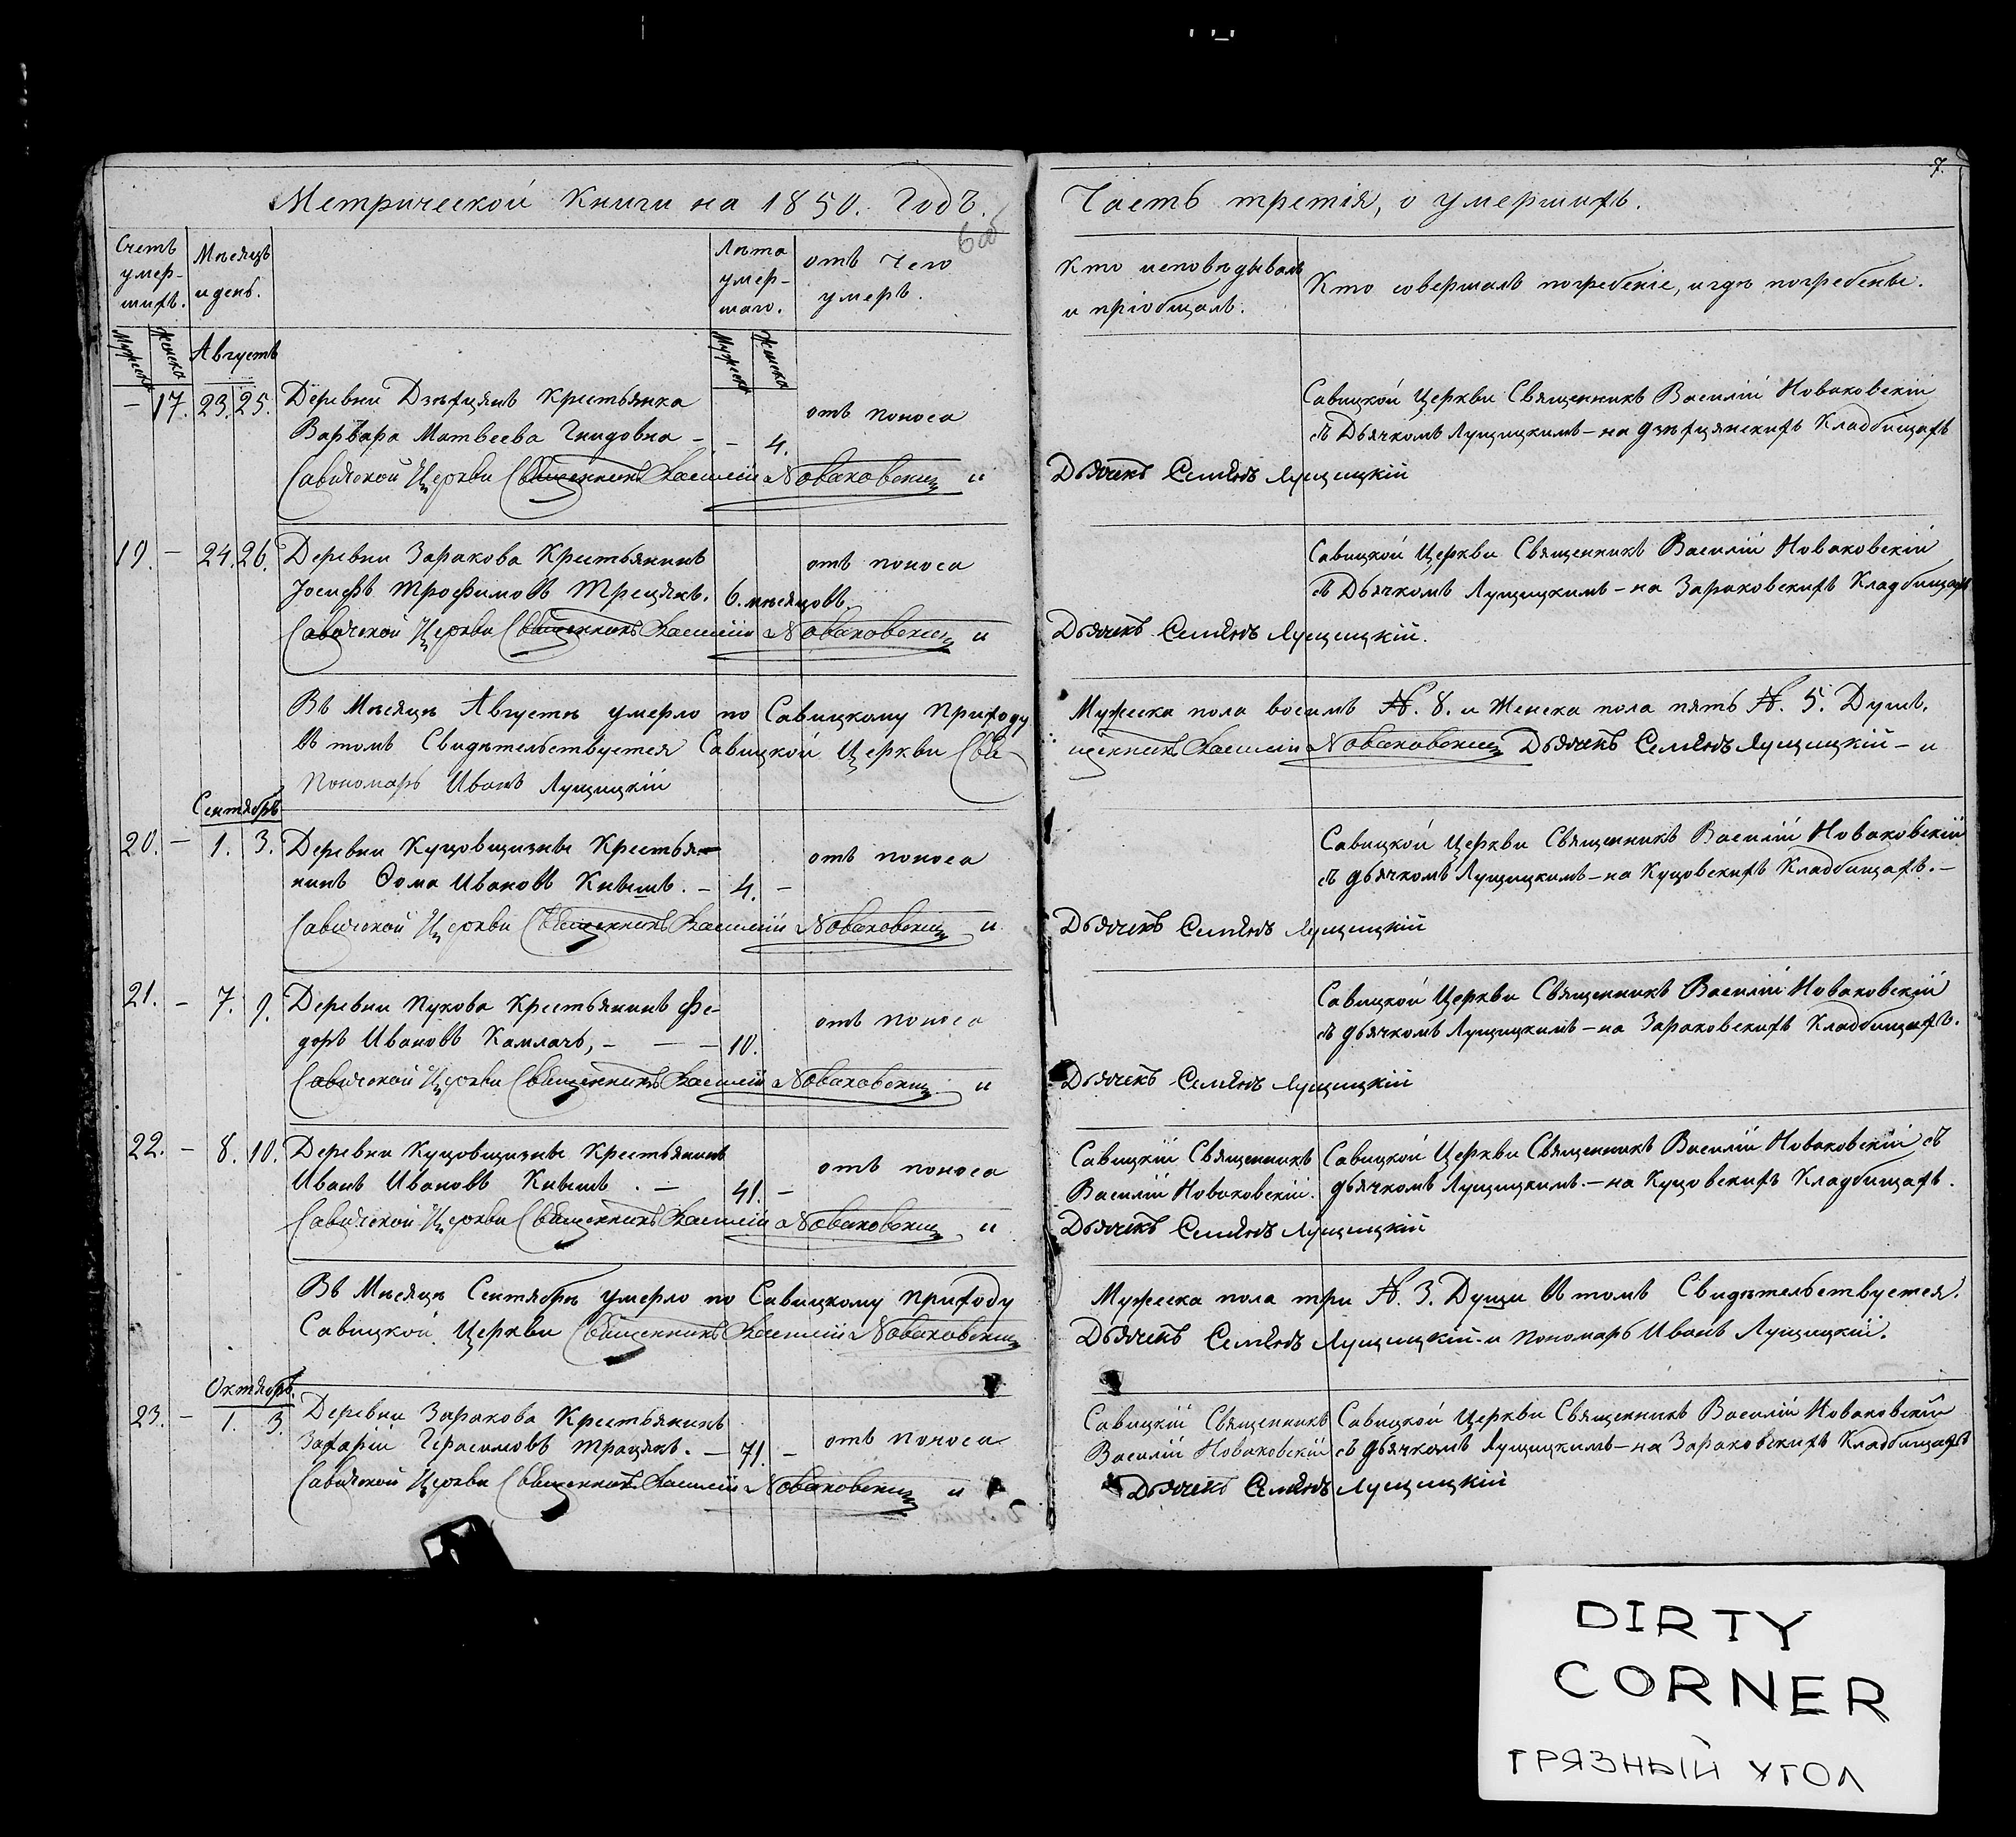 7.
Метрической Книги на 1850. Годъ.
Часть третія, о умершихъ.
6 об
Счетъ умер-шихъ.
Мѣсяцъ и день.
Лѣта умер-шаго.
отъ чего умеръ.
Кто исповѣдывалъ и пріобщалъ.
Кто совершалъ погребеніе, и гдѣ погребены.
Мужеска Женска
Мужеска Женска
Августъ
– 17. 23. 25. Деревни Дзѣхцянъ Крестьянка
Варвара Матвеева Гнидовна – – 4. отъ поноса
Савицкой Церкви Священникъ Василій Новаковскій
съ Дьячкомъ Лущицкимъ – на дзѣхцянскихъ Кладбищахъ
Савичской Церкви Священникъ Василій Новаковскій и Дьячекъ Семіонъ Лущицкій
19. – 24. 26. Деревни Заракова Крестьянинъ
Іосифъ Трофимовъ Трецякъ. 6. мѣсяцовъ. отъ поноса
Савицкой Церкви Священникъ Василій Новаковскій
съ Дьячкомъ Лущицкимъ – на Зараковскихъ Кладбищахъ
Савичской Церкви Священникъ Василій Новаковскій и Дьячекъ Семіонъ Лущицкій.
Въ Мѣсяцѣ Августѣ умерло по Савицкому Приходу Мужеска пола восимъ №. 8. и Женска пола пять №. 5. Душъ.
Въ томъ Свидѣтельствуется Савицкой Церкви Священникъ Василій Новаковскій Дьячекъ Семіонъ Лущицкій – и
Пономарь Иванъ Лущицкій
Сентябрь
20. – 1. 3. Деревни Куцовщизны Крестья-
нинъ Ѳома Ивановъ Кнышъ. – 4. – отъ поноса
Савицкой Церкви Священникъ Василій Новаковскій
съ дьячкомъ Лущицкимъ – на Куцовскихъ Кладбищахъ. –
Савичской Церкви Священникъ Василій Новаковскій и Дьячекъ Семіонъ Лущицкій
21. – 7. 9. Деревни Пукова Крестьянинъ Фе-
доръ Ивановъ Камлачъ, – – – 10. отъ поноса
Савицкой Церкви Священникъ Василій Новаковскій
съ дьячкомъ Лущицкимъ – на Зараковскихъ Кладбищахъ.
Савичской Церкви Священникъ Василій Новаковскій и Дьячекъ Семіонъ Лущицкій
22. – 8. 10. Деревни Куцовщизны Крестьянинъ
Иванъ Ивановъ Кнышъ. – 41. – отъ поноса
Савицкій Священникъ
Василій Новаковскій.
Савицкой Церкви Священникъ Василій Новаковскій съ
дьячкомъ Лущицкимъ. – на Куцовскихъ Кладбищахъ.
Савичской Церкви Священникъ Василій Новаковскій и Дьячекъ Семіонъ Лущицкій
Въ Мѣсяцѣ Сентябрѣ умерло по Савицкому Приходу Мужеска пола три №. 3. Души Въ томъ Свидѣтельствуется.
Савицкой Церкви Священникъ Василій Новаковскій Дьячекъ Семіонъ Лущицкій. и Пономарь Иванъ Лущицкій.
Октябрь.
23. – 1. 3. Деревни Заракова Крестьянинъ
Захарій Герасимовъ Трацякъ. – 71. – отъ поноса
Савицкій Священникъ
Василій Новаковскій
Савицкой Церкви Священникъ Василій Новаковскій
съ дьячкомъ Лущицкимъ – на Зараковскихъ Кладбищахъ
Савичской Церкви Священникъ Василій Новаковскій и Дьячекъ Семіонъ Лущицкій
DIRTY
CORNER
ГРЯЗНЫЙ УГОЛ